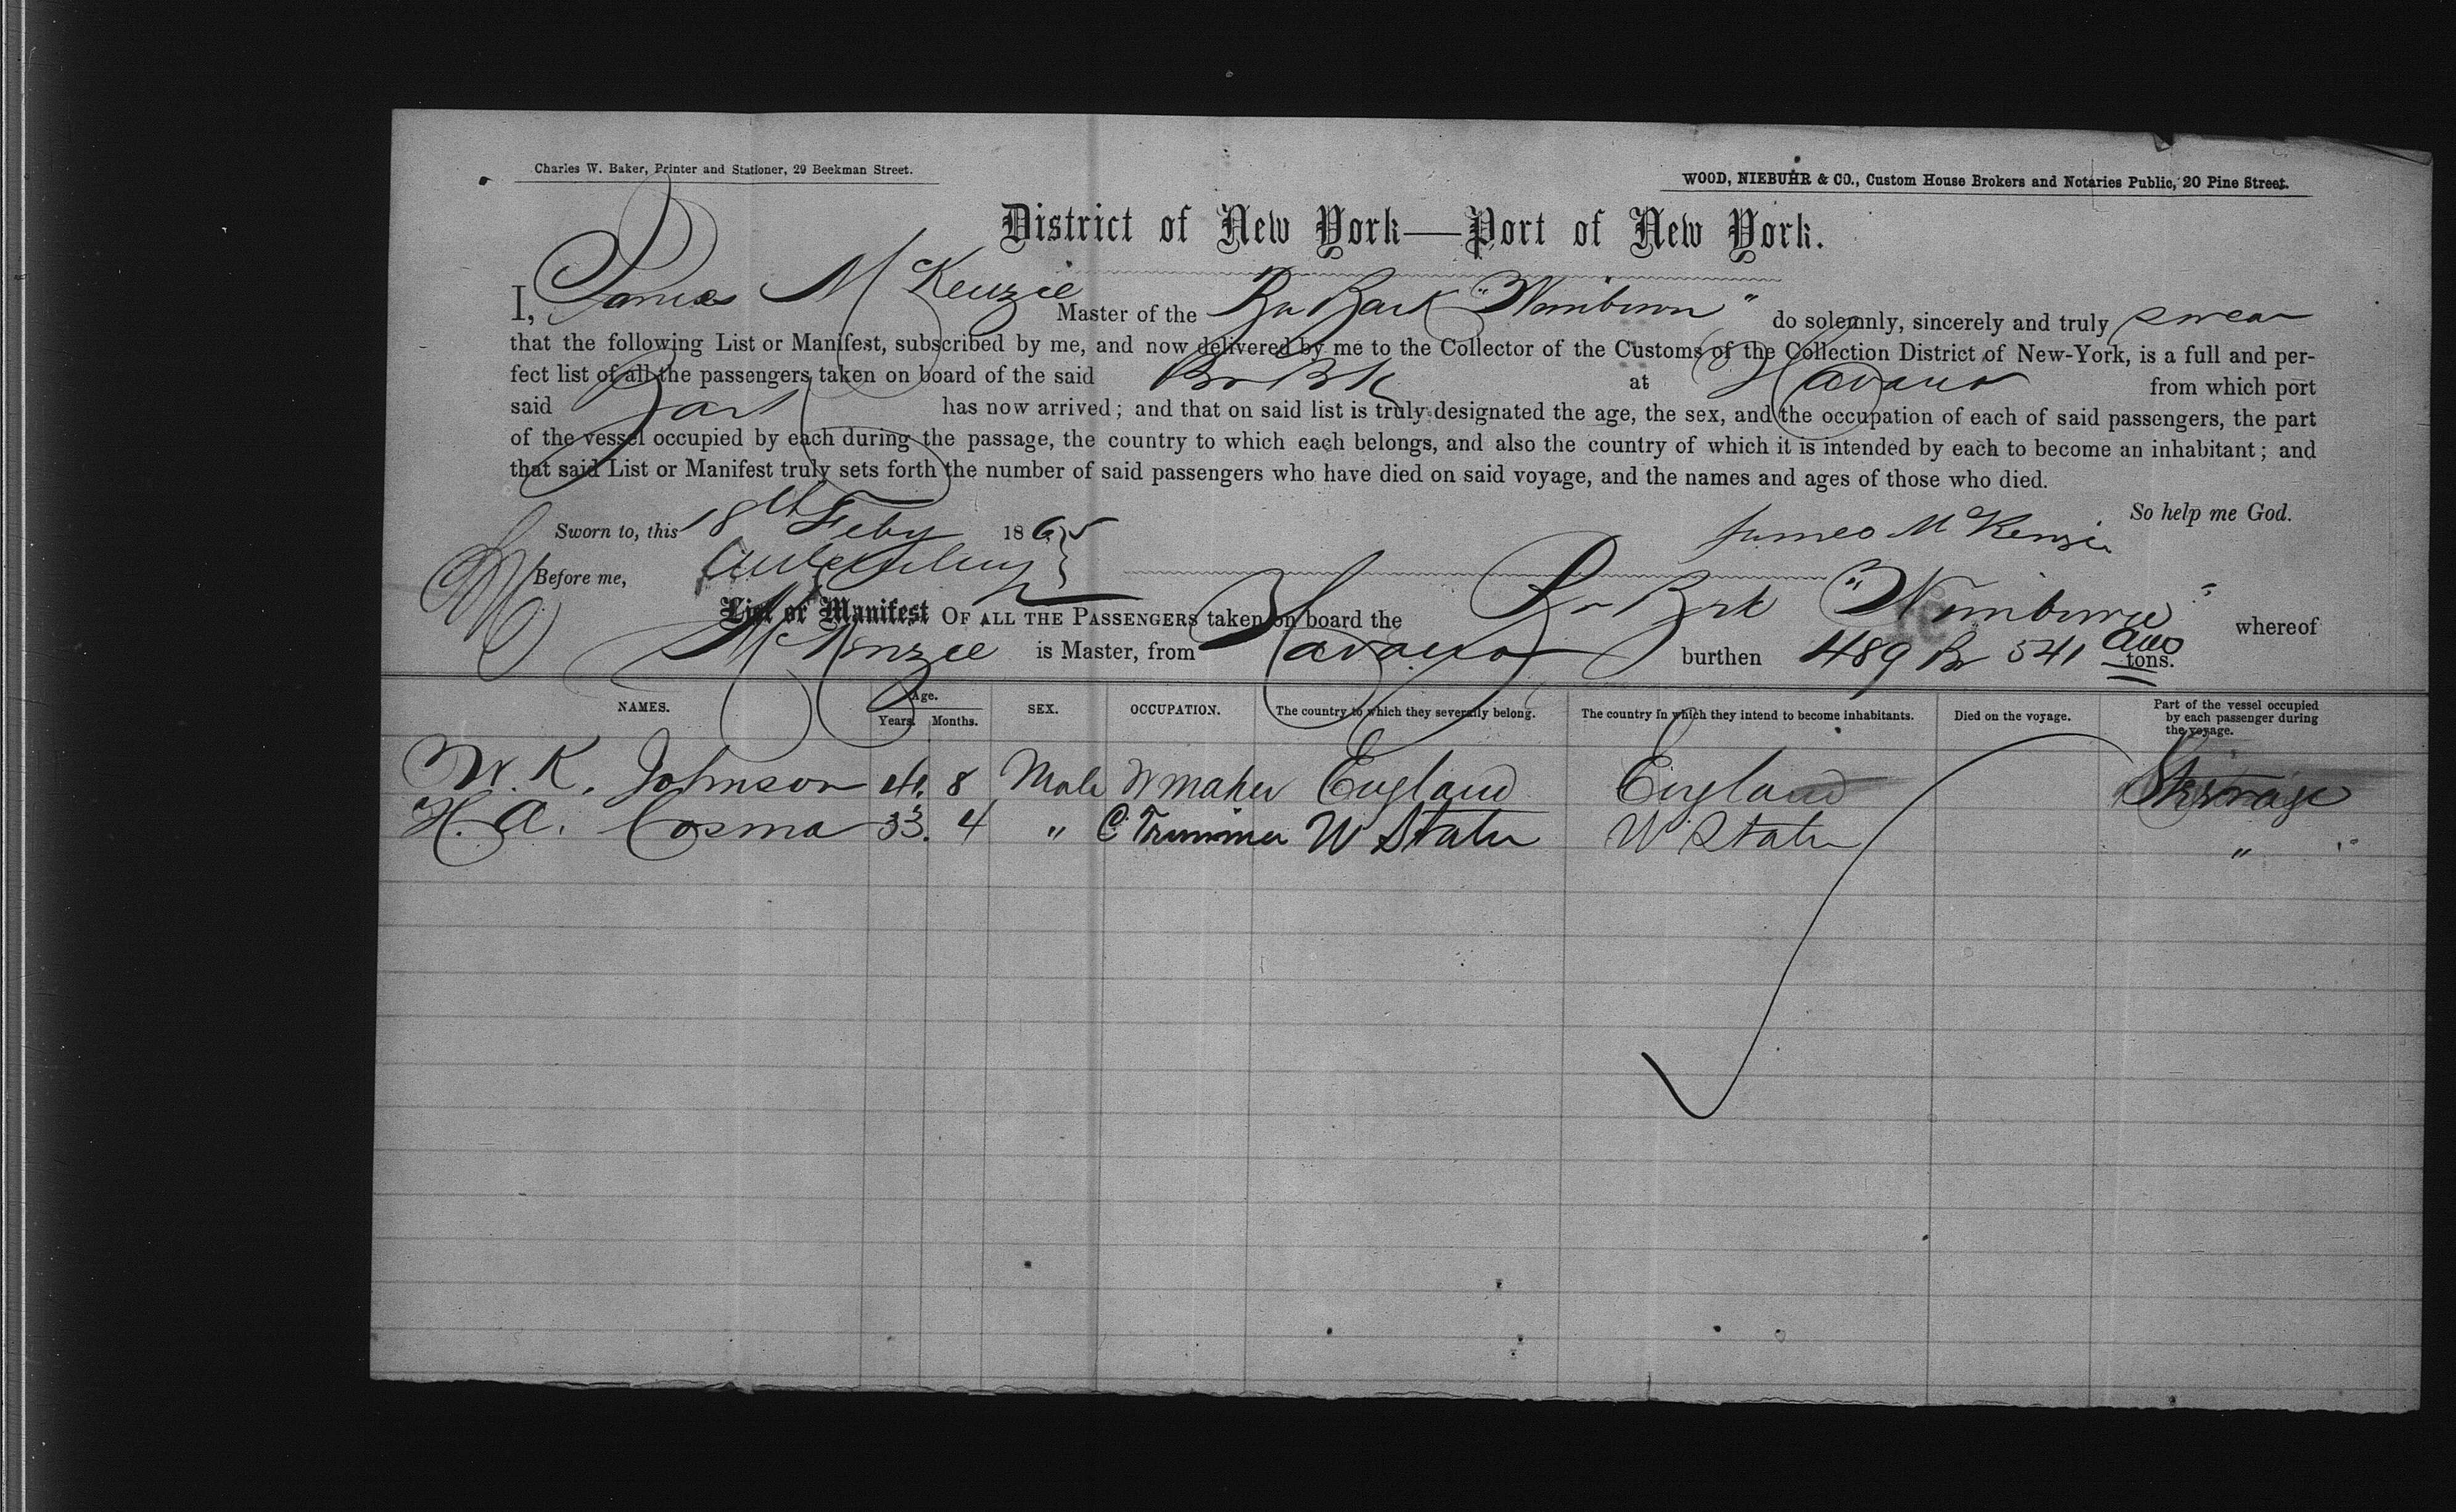 Charles W. Baker, Printer and Stationer, 29 Beekman Street.
WOOD, NIEBUHR & CO., Custom House Brokers and Notaries Public, 20 Pine Street.
District of New York—Port of New York.
I, James McKenzie Master of the Br Bark "Wimburn" do solemnly, sincerely and truly swear
that the following List or Manifest, subscribed by me, and now delivered by me to the Collector of the Customs of the Collection District of New-York, is a full and per-
fect list of all the passengers taken on board of the said Br Brk at Havana from which port
said Bark has now arrived; and that on said list is truly designated the age, the sex, and the occupation of each of said passengers, the part
of the vessel occupied by each during the passage, the country to which each belongs, and also the country of which it is intended by each to become an inhabitant; and
that said List or Manifest truly sets forth the number of said passengers who have died on said voyage, and the names and ages of those who died.
So help me God.
Sworn to, this 18th Feby 1865 James McKenzie
Before me,
List or Manifest OF ALL THE PASSENGERS taken on board the Br Brk "Wimburn" whereof
McKenzie is Master, from Havana burthen 489 Br 541 Am tons.
NAMES. Age. Years. Months. SEX. OCCUPATION. The country to which they severally belong. The country in which they intend to become inhabitants. Died on the voyage. Part of the vessel occupied by each passenger during the voyage.
W. K. Johnson 41. 8 Male W maker England England Steerage
H. A. Cosma 33. 4 " C Trimmer U States U States "